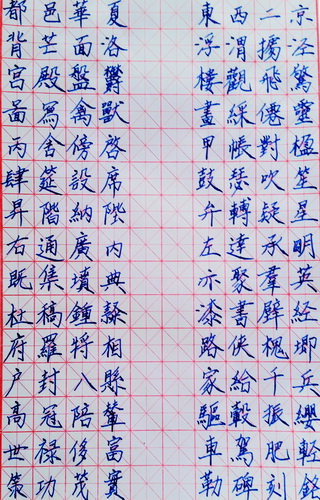 都邑華夏 東西二京
背芒面洛 浮渭據涇
宮殿盤鬱 樓觀飛驚
啚寫禽獸 畫綵僊靈
丙舍傍啓 甲帳對楹
肆筵設席 鼓瑟吹笙
昇階納陛 弁轉疑星
右通廣內 左達承明
既集墳典 亦聚羣英
杜稿鍾隸 漆書壁經
府羅將相 路俠槐卿
户封八縣 家給千兵
高冠陪輦 驅轂振纓
世禄侈富 車駕肥輕
策功茂實 勒碑刻銘